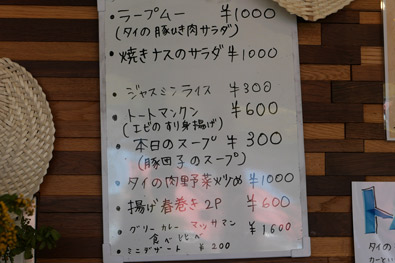 ・ラープムー ¥1000
(タイの豚ひき肉サラダ)
・焼きナスのサラダ ¥1000
・ジャスミンライス ¥300
・トートマンクン ¥600
(エビのすり身揚げ)
・本日のスープ ¥300
(豚団子のスープ)
・タイの肉野菜炒め ¥1000
・揚げ春巻き 2P ¥600
・グリーンカレー マッサマン ¥1600
食べ比べ
・ミニデザート ¥200
タイの